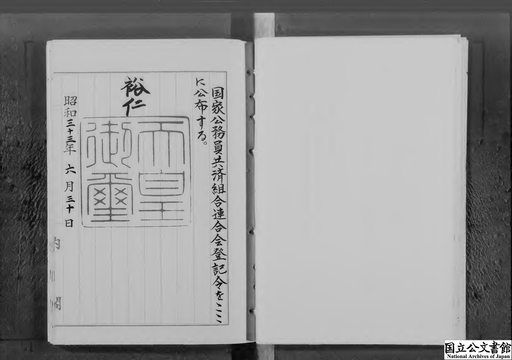 国家公務員共済組合連合会登記令をここ
に公布する。
裕仁
天皇
御璽
昭和三十三年 六月 三十日
内閣
国立公文書館
National Archives of Japan